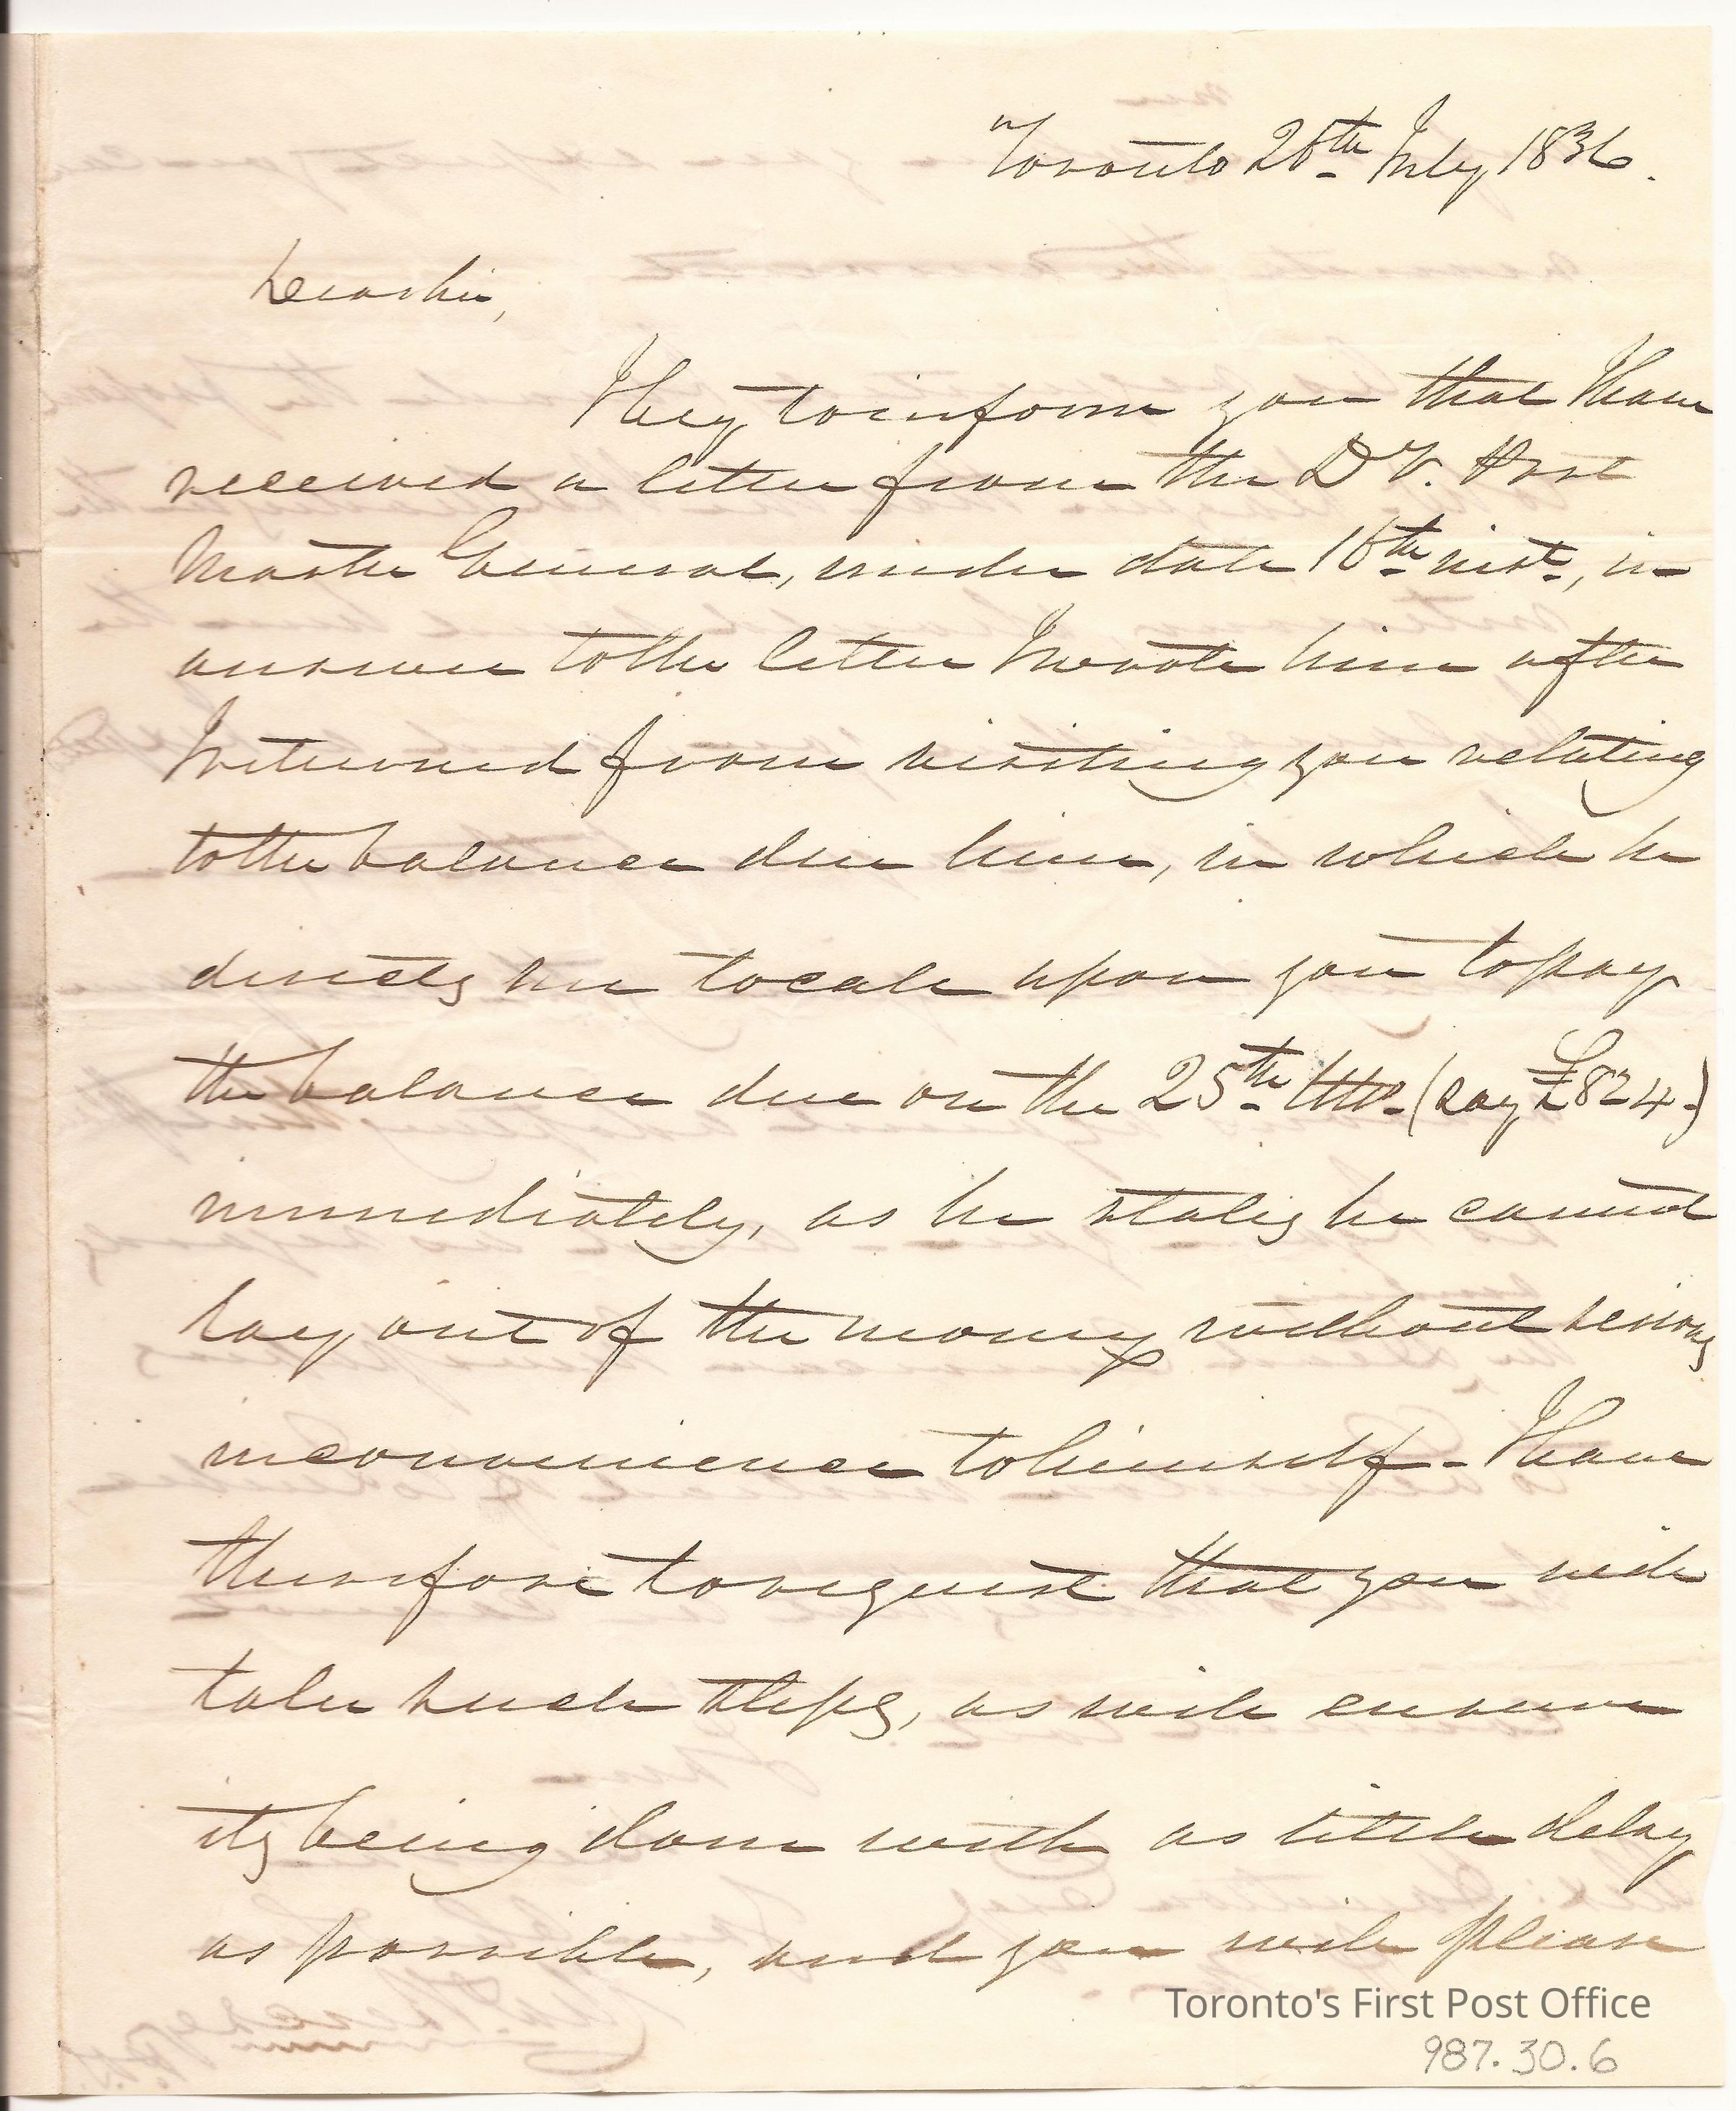 Toronto 26th July 1836.
Dear Sir,
I beg to inform you that I have
received a letter from the Dy. Post
Master General, under date 16th inst., in
answer to the letter I wrote him after
I returned from visiting you relating
to the balance due him, in which he
directs me to call upon you to pay
the balance due on the 25th Ulto. (say £824.)
immediately, as he states he cannot
lay out of the money without serious
inconvenience to himself - I have
therefore to request that you will
take such steps, as will ensure
its being done with as little delay
as possible, and you will please
Toronto's First Post Office
987.30.6